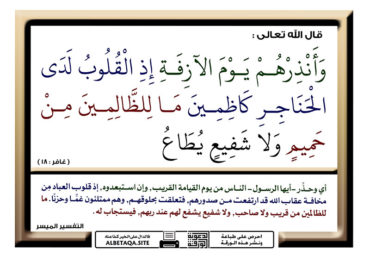 قال الله تعالى :
وَأَنْذِرْهُمْ يَوْمَ الْآزِفَةِ إِذِ الْقُلُوبُ لَدَى
الْحَنَاجِرِ كَاظِمِينَ مَا لِلظَّالِمِينَ مِنْ
حَمِيمٍ وَلَا شَفِيعٍ يُطَاعُ
( غافر : ١٨ )
أي وحذِّر -أيها الرسول- الناس من يوم القيامة القريب, وإن استبعدوه, إذ قلوب العباد مِن
مخافة عقاب الله قد ارتفعت من صدورهم, فتعلقت بحلوقهم, وهم ممتلئون غمًّا وحزنًا. ما
للظالمين من قريب ولا صاحب, ولا شفيع يشفع لهم عند ربهم, فيستجاب له.
التفسير الميسر
احرص على طباعة
ونشر هذه الورقة
فالدال على الخير كفاعله
ALBETAQA.SITE